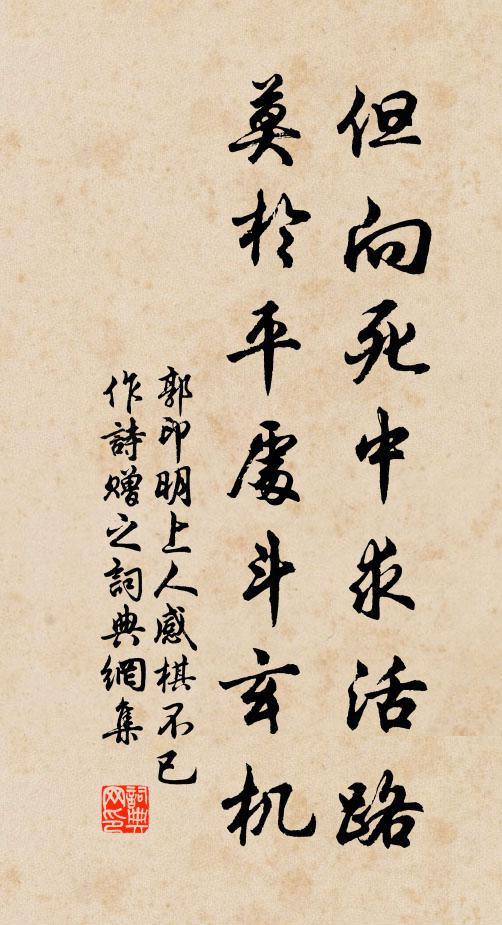 但向死中求活路
莫於平處斗玄机
郭印明上人感棋不已
作詩贈之詞典網集
詞典网印